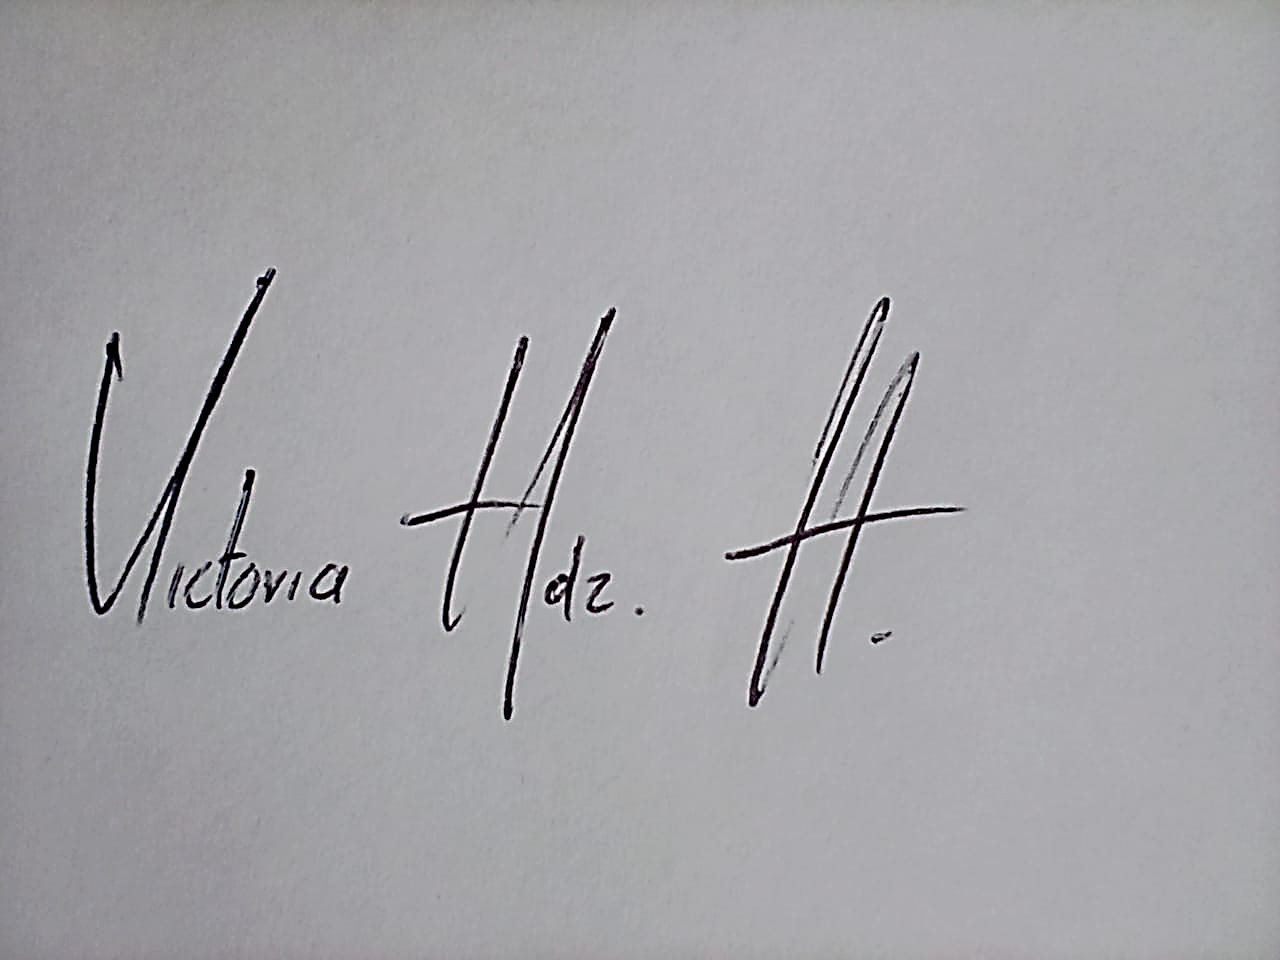 Victoria Hdz. H.